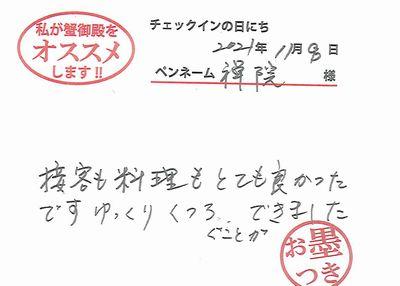 私が蟹御殿を
オススメ
します!!
チェックインの日にち
2021年11月8日
ペンネーム 禅院 様
接客も料理もとても良かった
ですゆっくりくつろ できました
ぐことが
お墨
つき